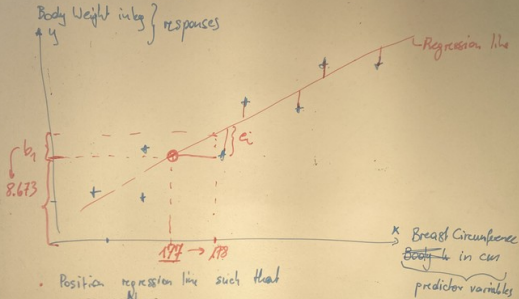 Body Weight in kg } responses
y
Regression line
b1
ei
8.673
177 → 178
x Breast Circumference
in cm
predictor variables
• Position regression line such that